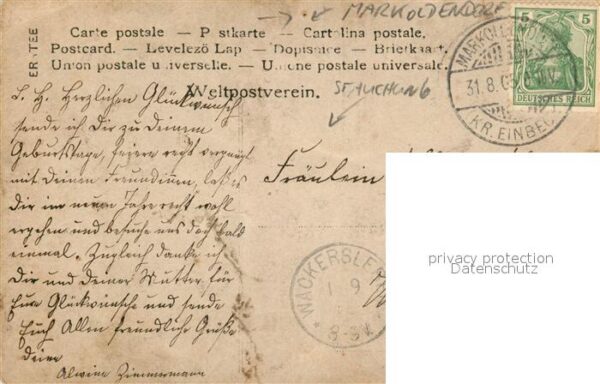 MARKOLDENDORF
Carte postale — Postkarte — Cartolina postale,
Postcard. — Levelező Lap — Dopisnice — Briefkaart.
Union postale universelle. — Unione postale universale.
Weltpostverein.
STAUCHUNG
5 5
DEUTSCHES REICH
MARKOLDENDORF
31.8.0
KR. EINBECK
L. H. Herzlichen Glückwunsch
sende ich Dir zu Deinem
Geburtstage, feiere recht vergnügt
mit Deinen Freundinnen, laß es
Dir im neuen Jahre recht wohl
ergehen und besuche uns doch bald
einmal. Zugleich danke ich
Dir und Deiner Mutter für
Eure Glückwünsche und sende
Euch Allen freundliche Grüße
Deine
Alwine Zimmermann
Fräulein
WACKERSLE
1 9
8-9 V
privacy protection
Datenschutz